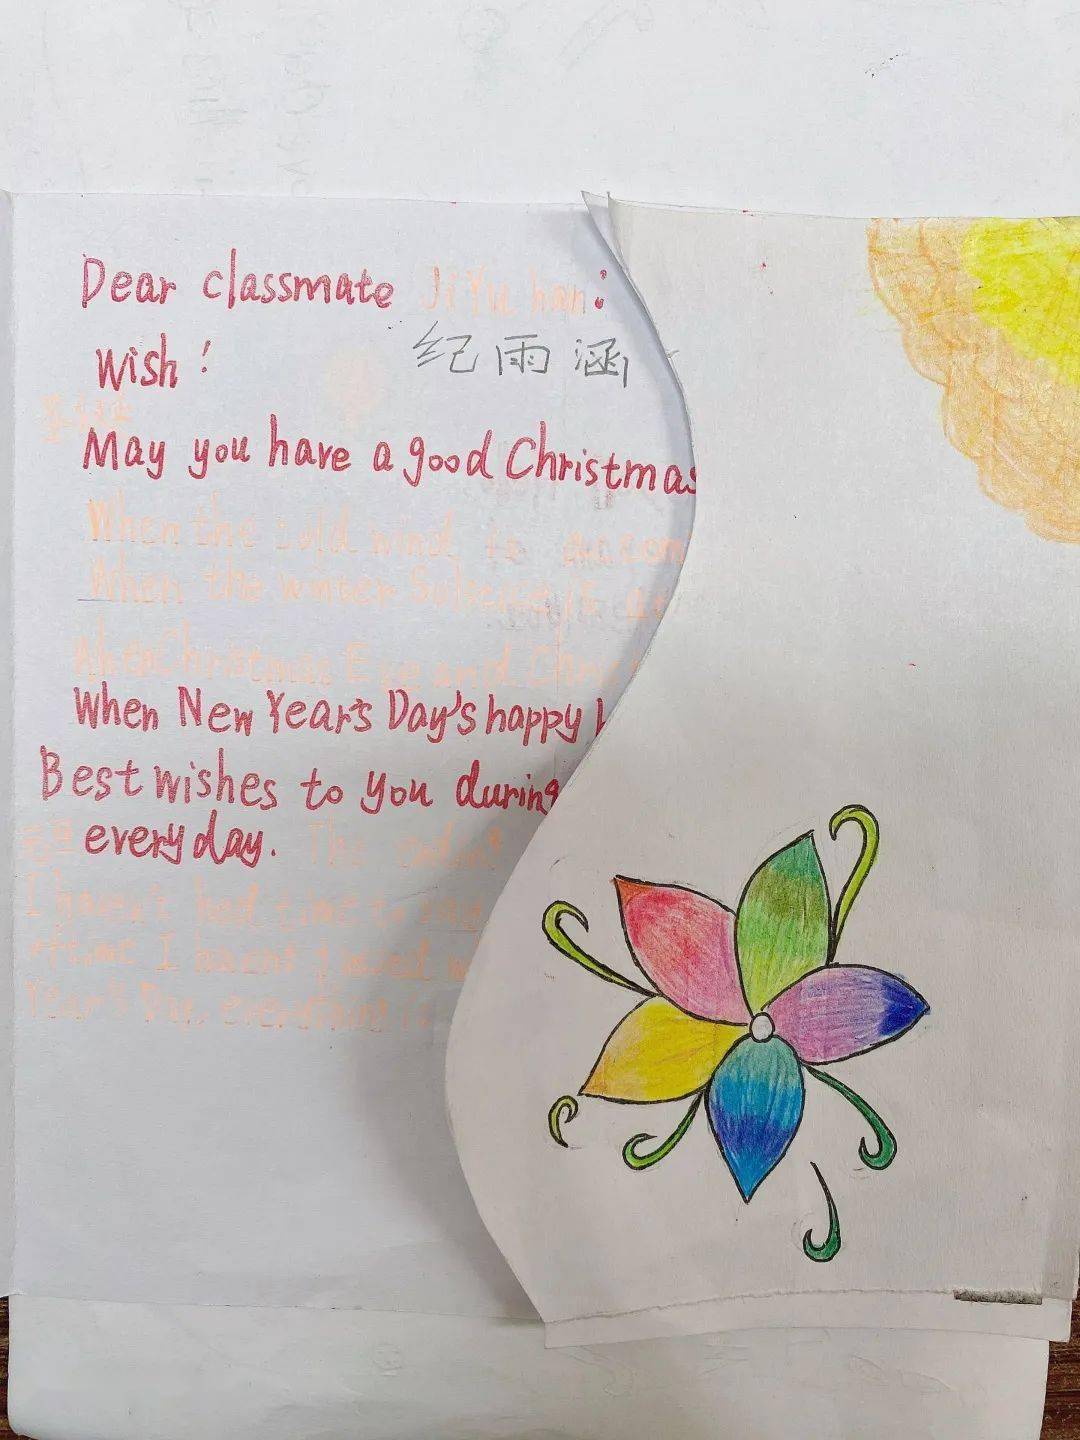 Dear classmate JiYu han:
纪雨涵
Wish!
May you have a good Christmas
When the cold wind to
When the winter Solstice
When Christmas Eve and Chris
When New Year's Day's happy
Best wishes to you during
every day. The
I haven't had time to
I haven't
Year's Day, everything is